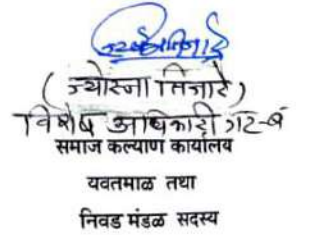 ( ज्योस्ना तिजारे )
विशेष अधिकारी गट-ब
समाज कल्याण कार्यालय
यवतमाळ तथा
निवड मंडळ सदस्य